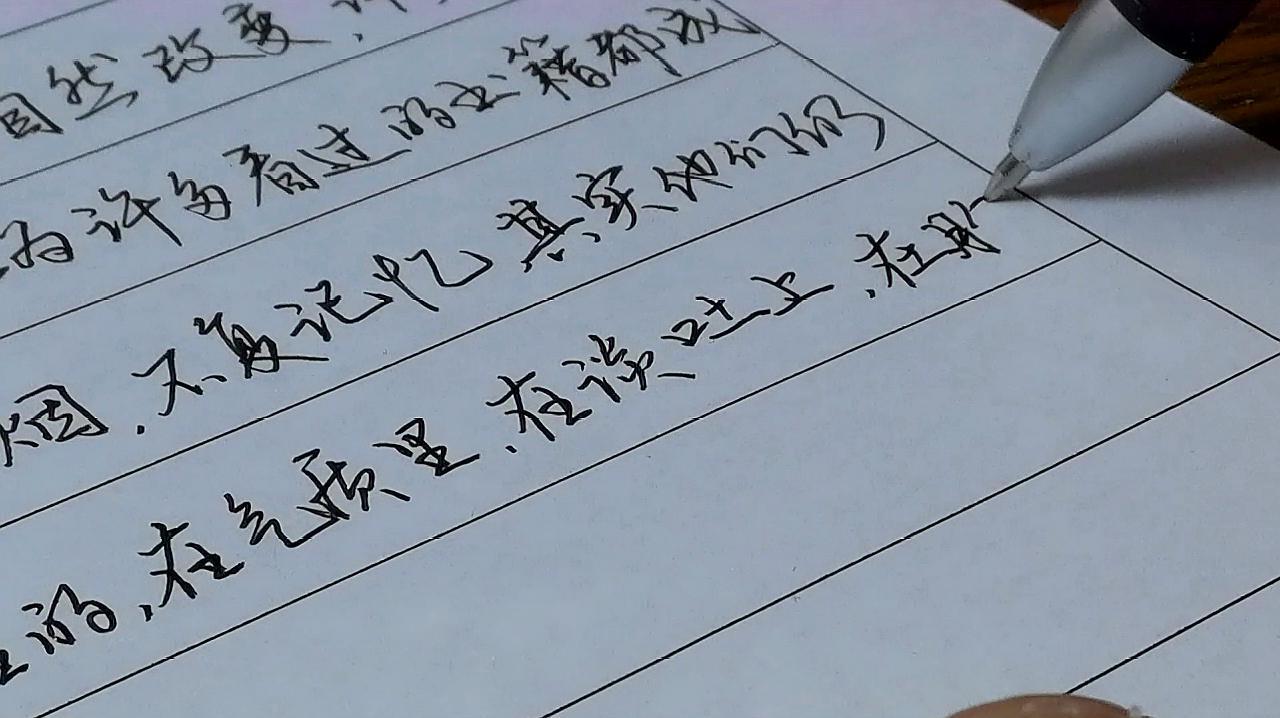 自然改变，许
为许多看过的书籍都成
烟，不复记忆其实他们仍
在的，在气质里，在谈吐上，在